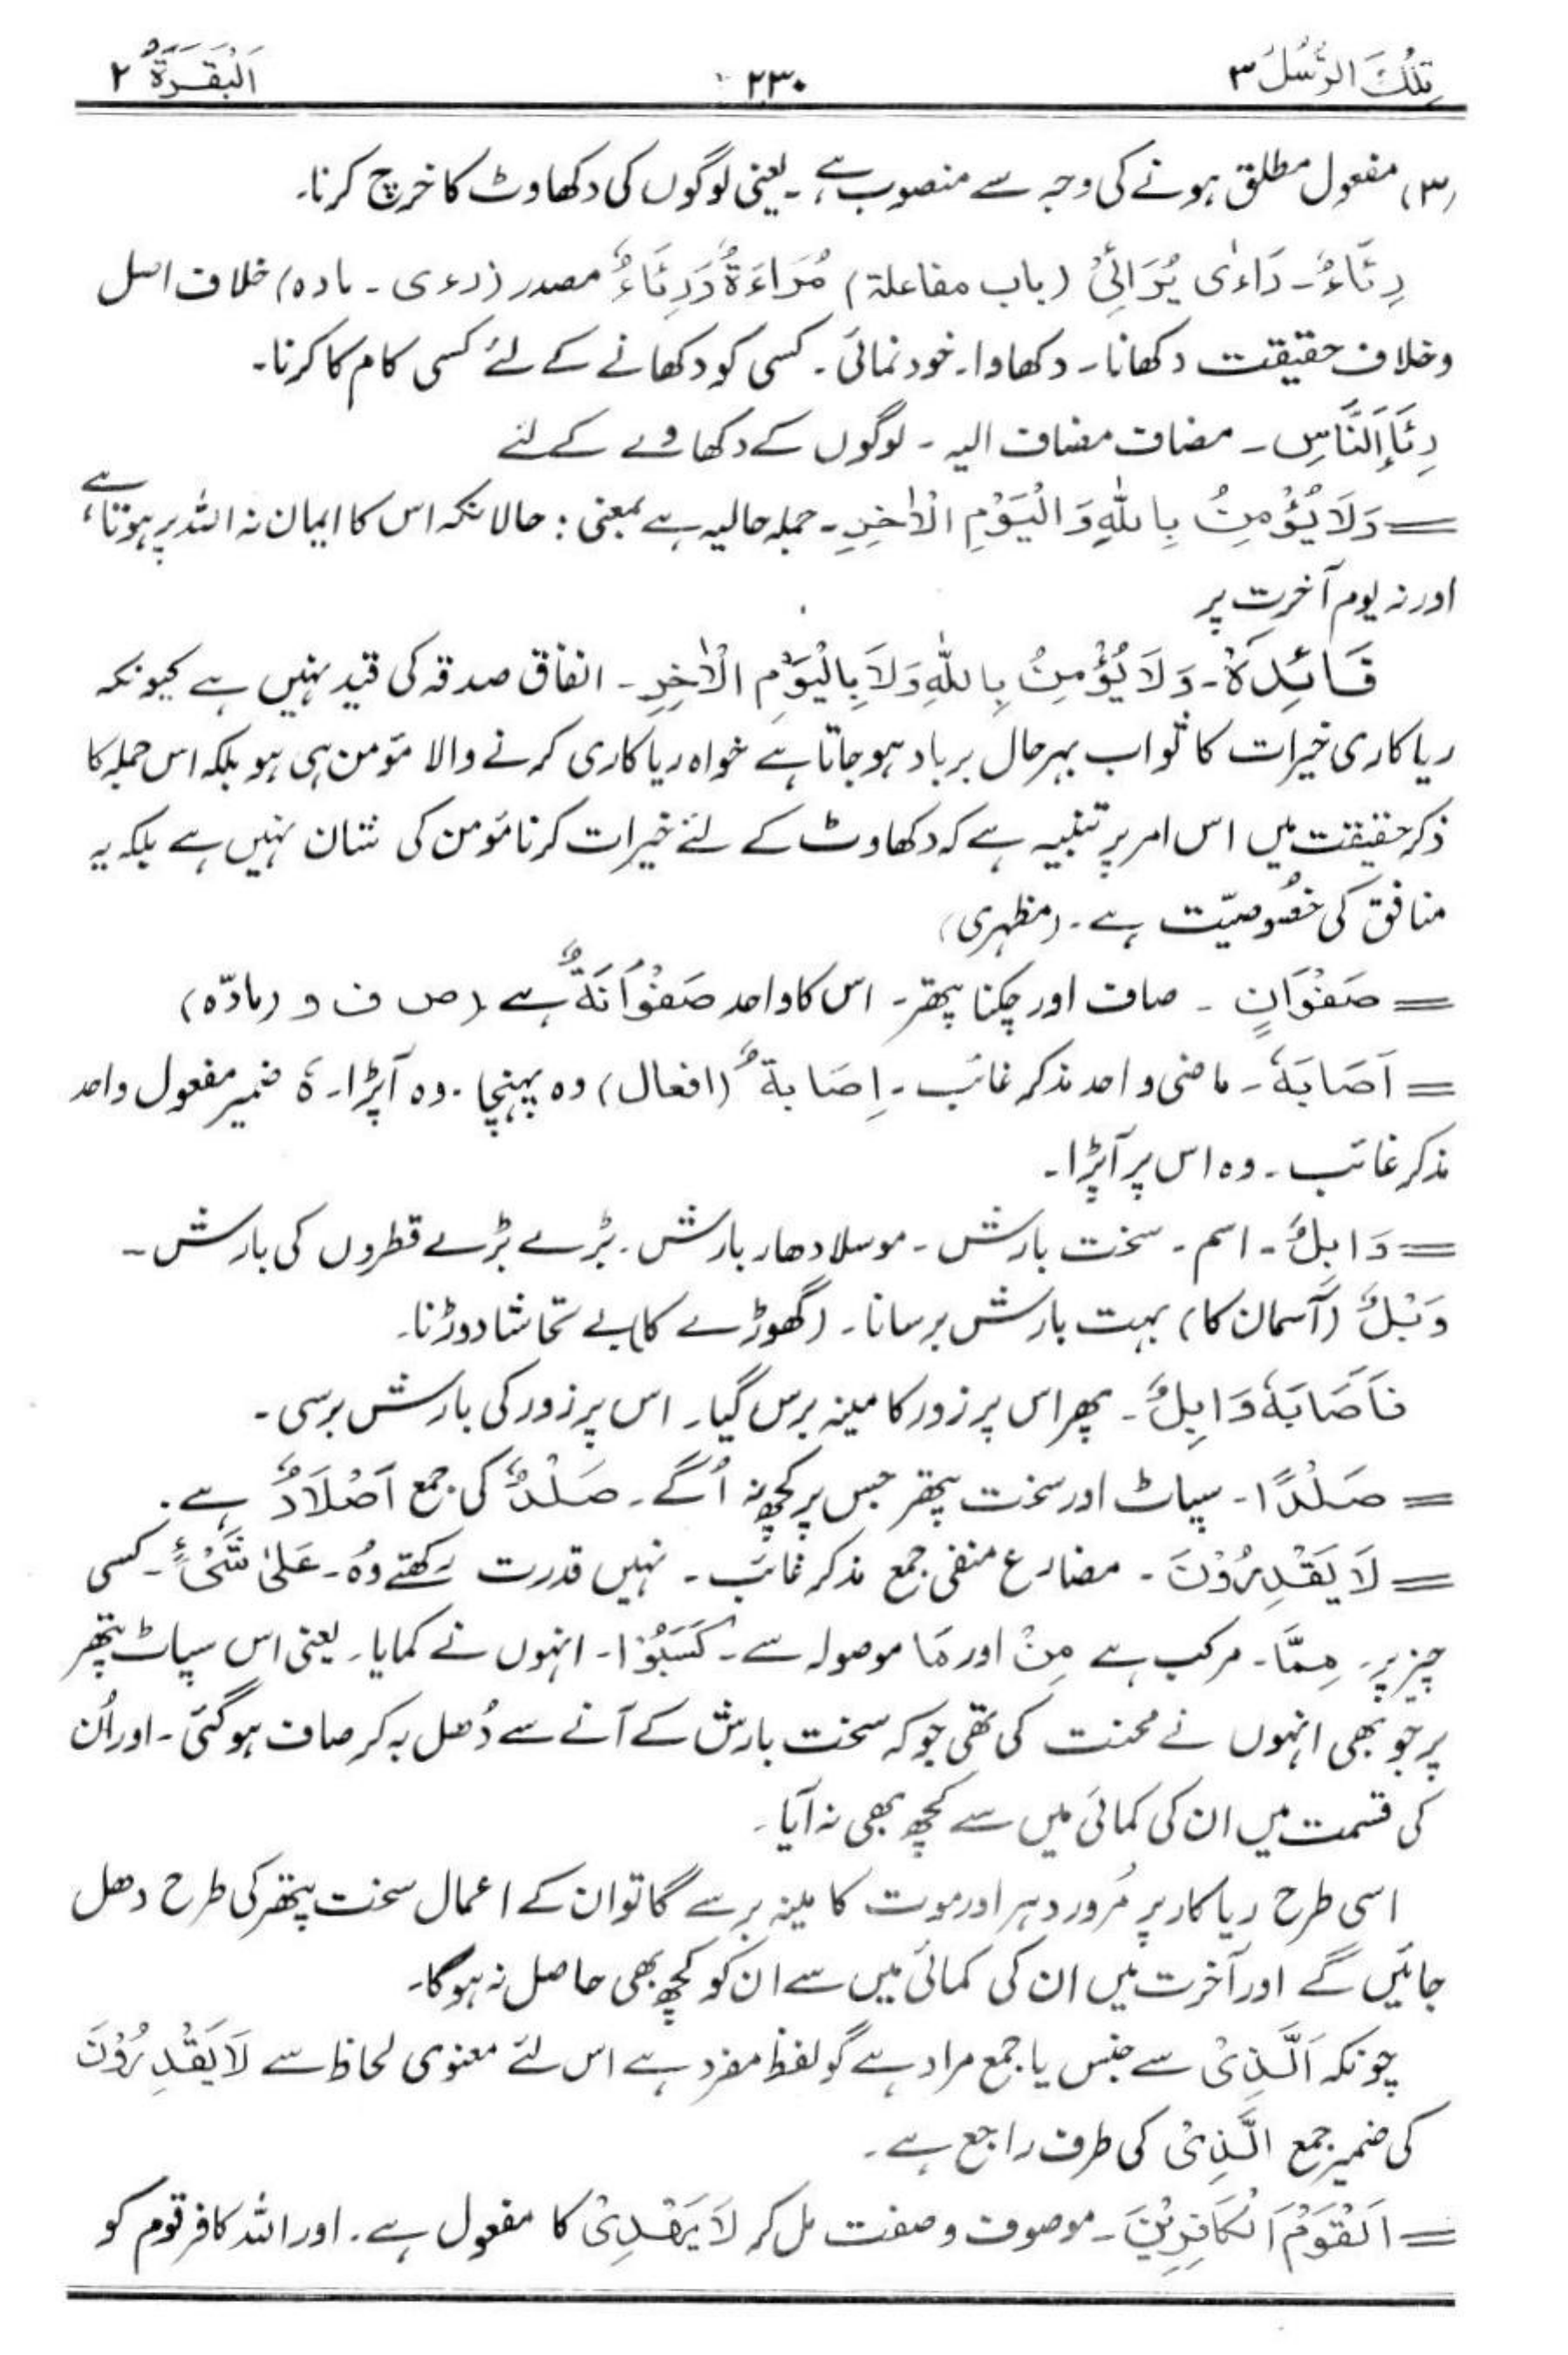 تِلْكَ الرُّسُلُ ۳ ۲۳۰ اَلْبَقَرَةُ ۲
(۳) مفعول مطلق ہونے کی وجہ سے منصوب ہے۔ یعنی لوگوں کی دکھاوٹ کا خرچ کرنا۔
رِئَاءَ۔ رَاءٰی یُرَائِیْ (باب مفاعلۃ) مُرَاءَةٌ وَرِئَاءٌ مصدر (رءی۔ مادہ) خلاف اصل
وخلاف حقیقت دکھانا۔ دکھاوا۔ خود نمائی۔ کسی کو دکھانے کے لئے کسی کام کا کرنا۔
رِئَاءَ النَّاسِ۔ مضاف مضاف الیہ۔ لوگوں کے دکھاوے کے لئے
= وَلَا یُؤْمِنُ بِاللّٰہِ وَالْیَوْمِ الْاٰخِرِ۔ جملہ حالیہ ہے بمعنی: حالانکہ اس کا ایمان نہ اللہ پر ہوتا ہے،
اور نہ یوم آخرت پر
فَائِدَہْ۔ وَلَا یُؤْمِنُ بِاللّٰہِ وَلَا بِالْیَوْمِ الْاٰخِرِ۔ انفاق صدقہ کی قید نہیں ہے کیونکہ
ریاکاری خیرات کا ثواب بہرحال برباد ہو جاتا ہے خواہ ریاکاری کرنے والا مؤمن ہی ہو بلکہ اس جملہ کا
ذکر حقیقت میں اس امر پر تنبیہ ہے کہ دکھاوٹ کے لئے خیرات کرنا مؤمن کی شان نہیں ہے بلکہ یہ
منافق کی خصُوصیّت ہے۔ (مظہری)
= صَفْوَانٍ ۔ صاف اور چکنا پتھر۔ اس کا واحد صَفْوَانَةٌ ہے (ص ف و (مادّہ)
= اَصَابَہٗ۔ ماضی واحد مذکر غائب۔ اِصَابَةٌ (افعال) وہ پہنچا۔ وہ آپڑا۔ ہٗ ضمیر مفعول واحد
مذکر غائب۔ وہ اس پر آپڑا۔
= وَابِلٌ۔ اسم۔ سخت بارش۔ موسلادھار بارش۔ بڑے بڑے قطروں کی بارش۔
وَبْلٌ (آسمان کا) بہت بارش برسانا۔ (گھوڑے کا) بے تحاشا دوڑنا۔
فَاَصَابَہٗ وَابِلٌ۔ پھر اس پر زور کا مینہ برس گیا۔ اس پر زور کی بارش برسی۔
= صَلْدًا۔ سپاٹ اور سخت پتھر جس پر کچھ نہ اُگے۔ صَلْدٌ کی جمع اَصْلَادٌ ہے۔
= لَا یَقْدِرُوْنَ۔ مضارع منفی جمع مذکر غائب۔ نہیں قدرت رکھتے وُہ۔ عَلٰی شَیْءٍ۔ کسی
چیز پر۔ مِمَّا۔ مرکب ہے مِنْ اور مَا موصولہ سے۔ کَسَبُوْا۔ انہوں نے کمایا۔ یعنی اس سپاٹ پتھر
پر جو بھی انہوں نے محنت کی تھی جو کہ سخت بارش کے آنے سے دُھل بہ کر صاف ہو گئی۔ اور اُن
کی قسمت میں ان کی کمائی میں سے کچھ بھی نہ آیا۔
اسی طرح ریاکار پر مُرورِ دہر اور موت کا مینہ برسے گا تو ان کے اعمال سخت پتھر کی طرح دھل
جائیں گے اور آخرت میں ان کی کمائی میں سے ان کو کچھ بھی حاصل نہ ہوگا۔
چونکہ اَلَّذِیْ سے جنس یا جمع مراد ہے گو لفظ مفرد ہے اس لئے معنوی لحاظ سے لَا یَقْدِرُوْنَ
کی ضمیر جمع الَّذِیْ کی طرف راجع ہے۔
= اَلْقَوْمَ الْکَافِرِیْنَ۔ موصوف وصفت مل کر لَا یَھْدِیْ کا مفعول ہے۔ اور اللہ کافر قوم کو